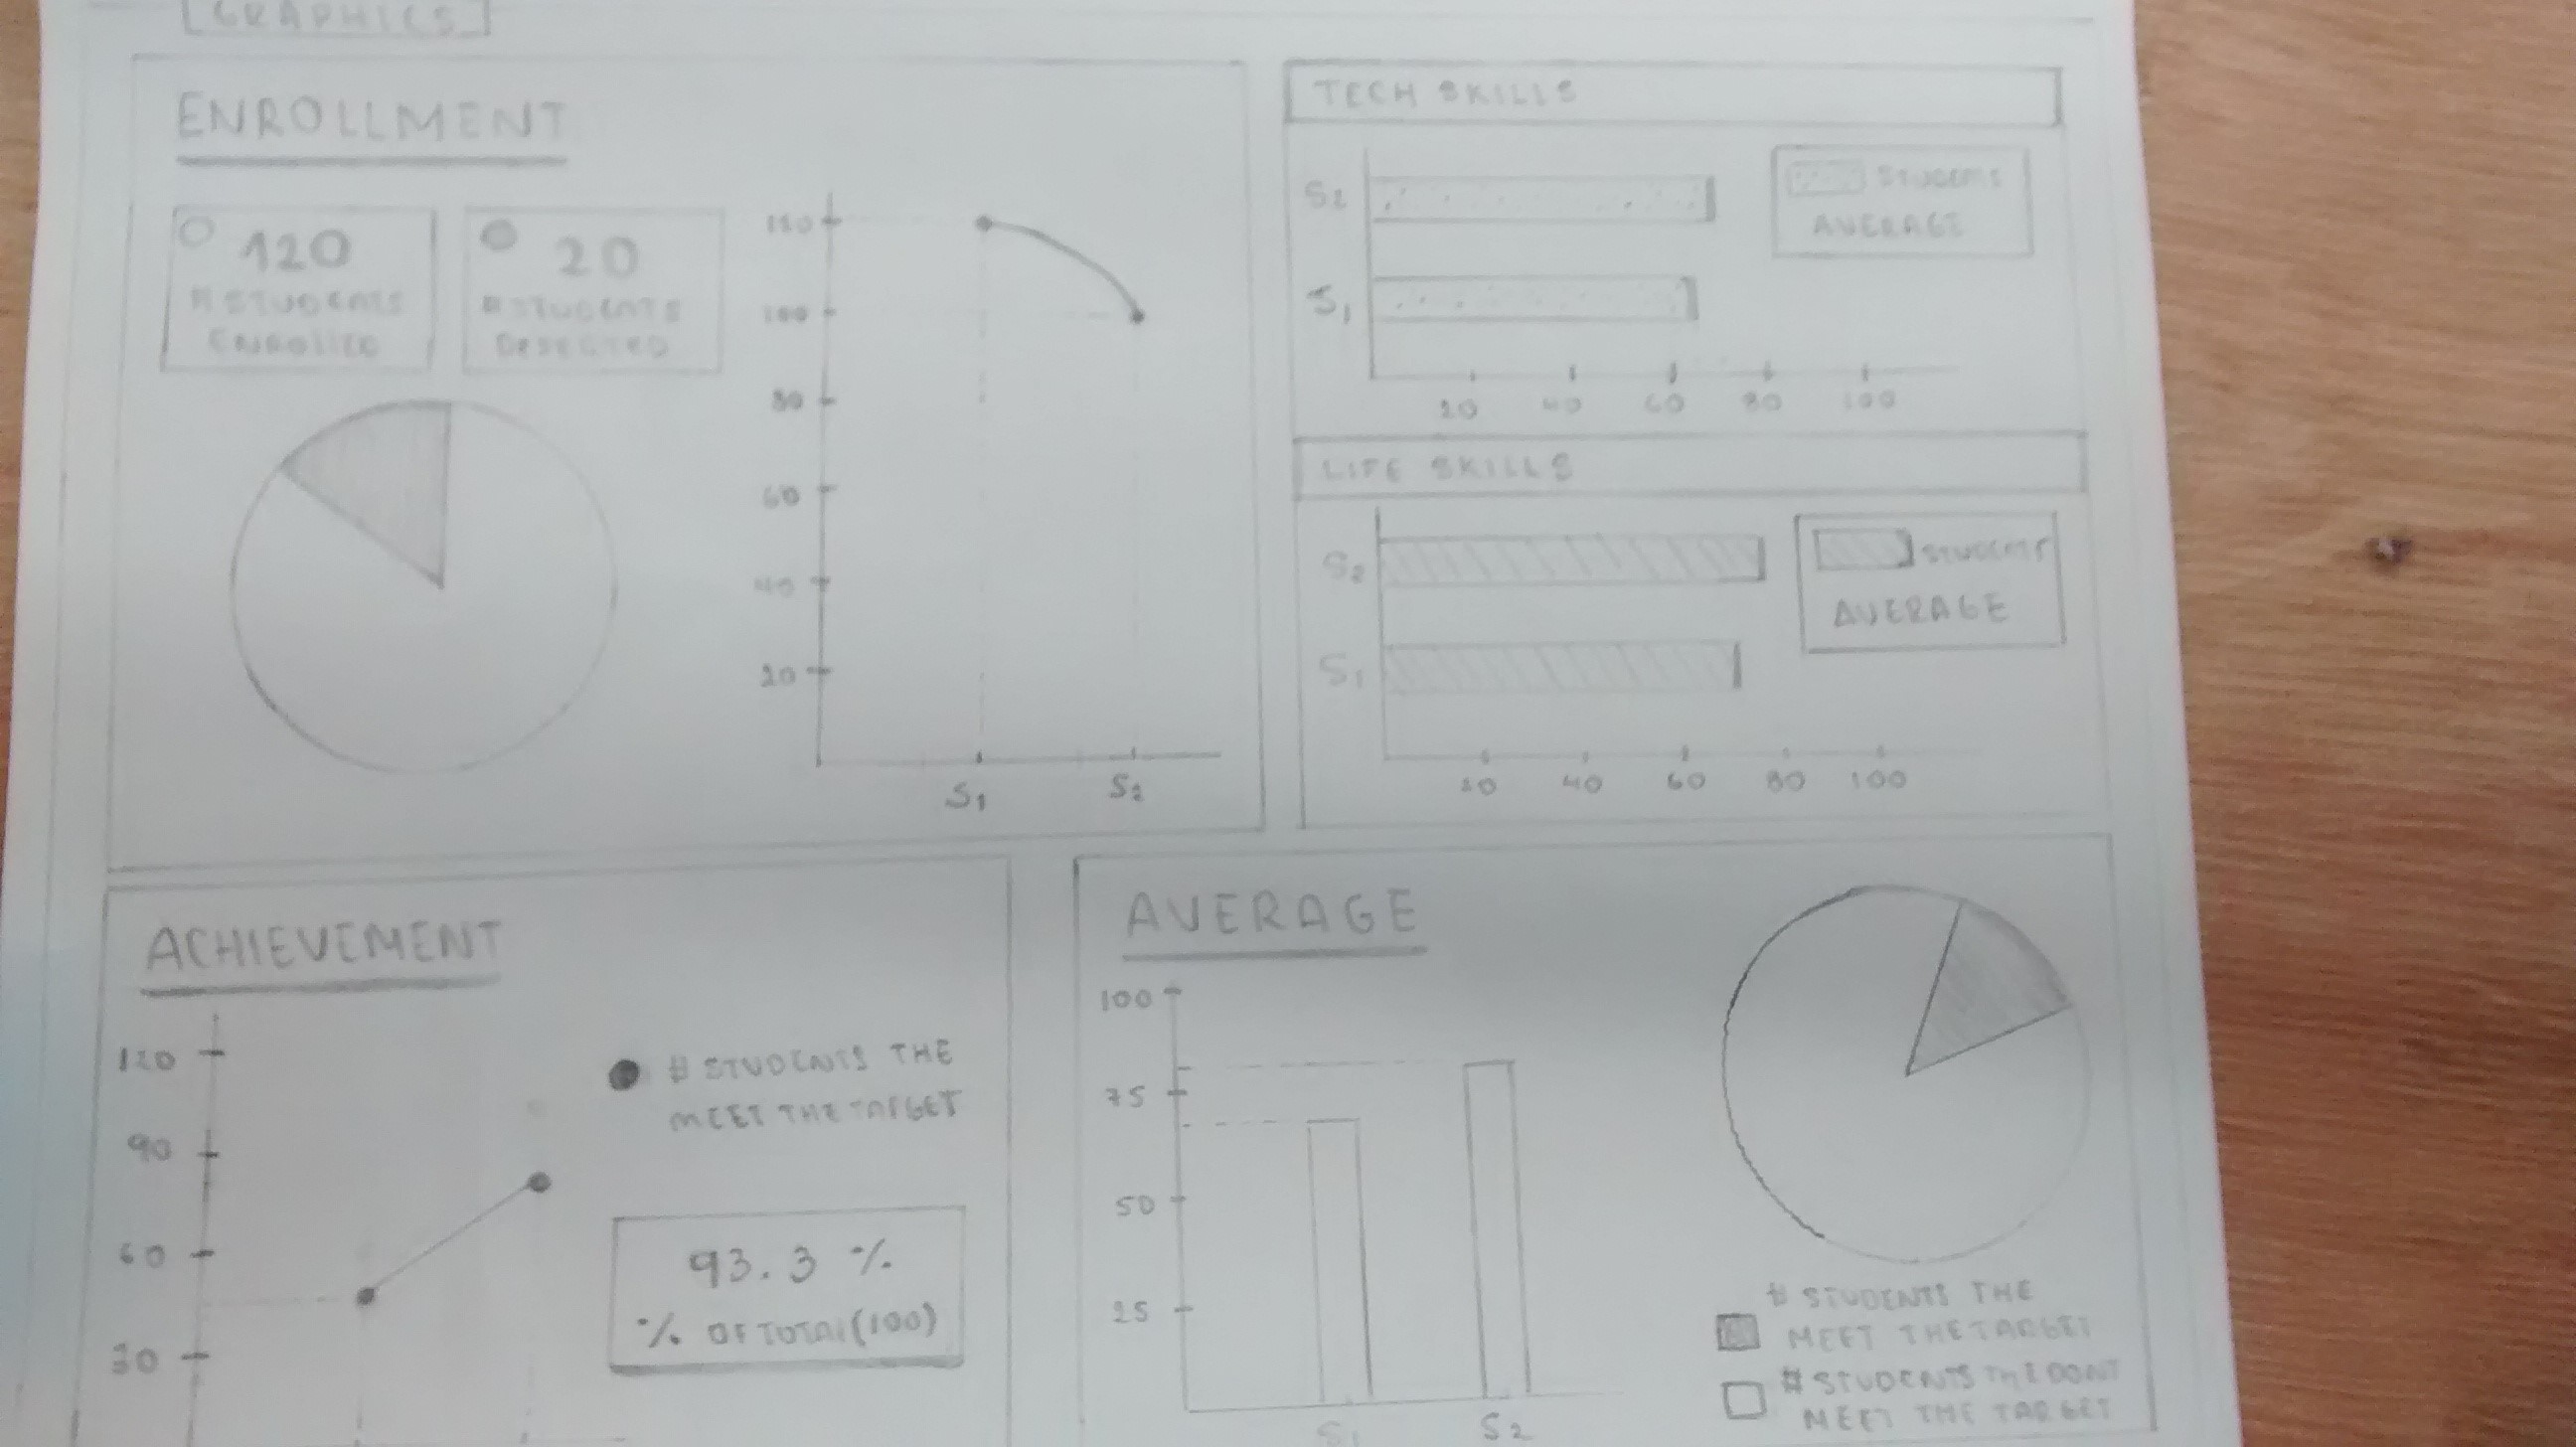 GRAPHICS
ENROLLMENT
120
# STUDENTS
ENROLLED
20
# STUDENTS
DESERTED
120
100
80
60
40
20
S1
S2
TECH SKILLS
S2
S1
STUDENTS
AVERAGE
20 40 60 80 100
LIFE SKILLS
S2
S1
STUDENTS
AVERAGE
20 40 60 80 100
ACHIEVEMENT
120
90
60
30
# STUDENTS THE
MEET THE TARGET
93.3 %
% OF TOTAL (100)
AVERAGE
100
75
50
25
S1
S2
# STUDENTS THE
MEET THE TARGET
# STUDENTS THE DONT
MEET THE TARGET